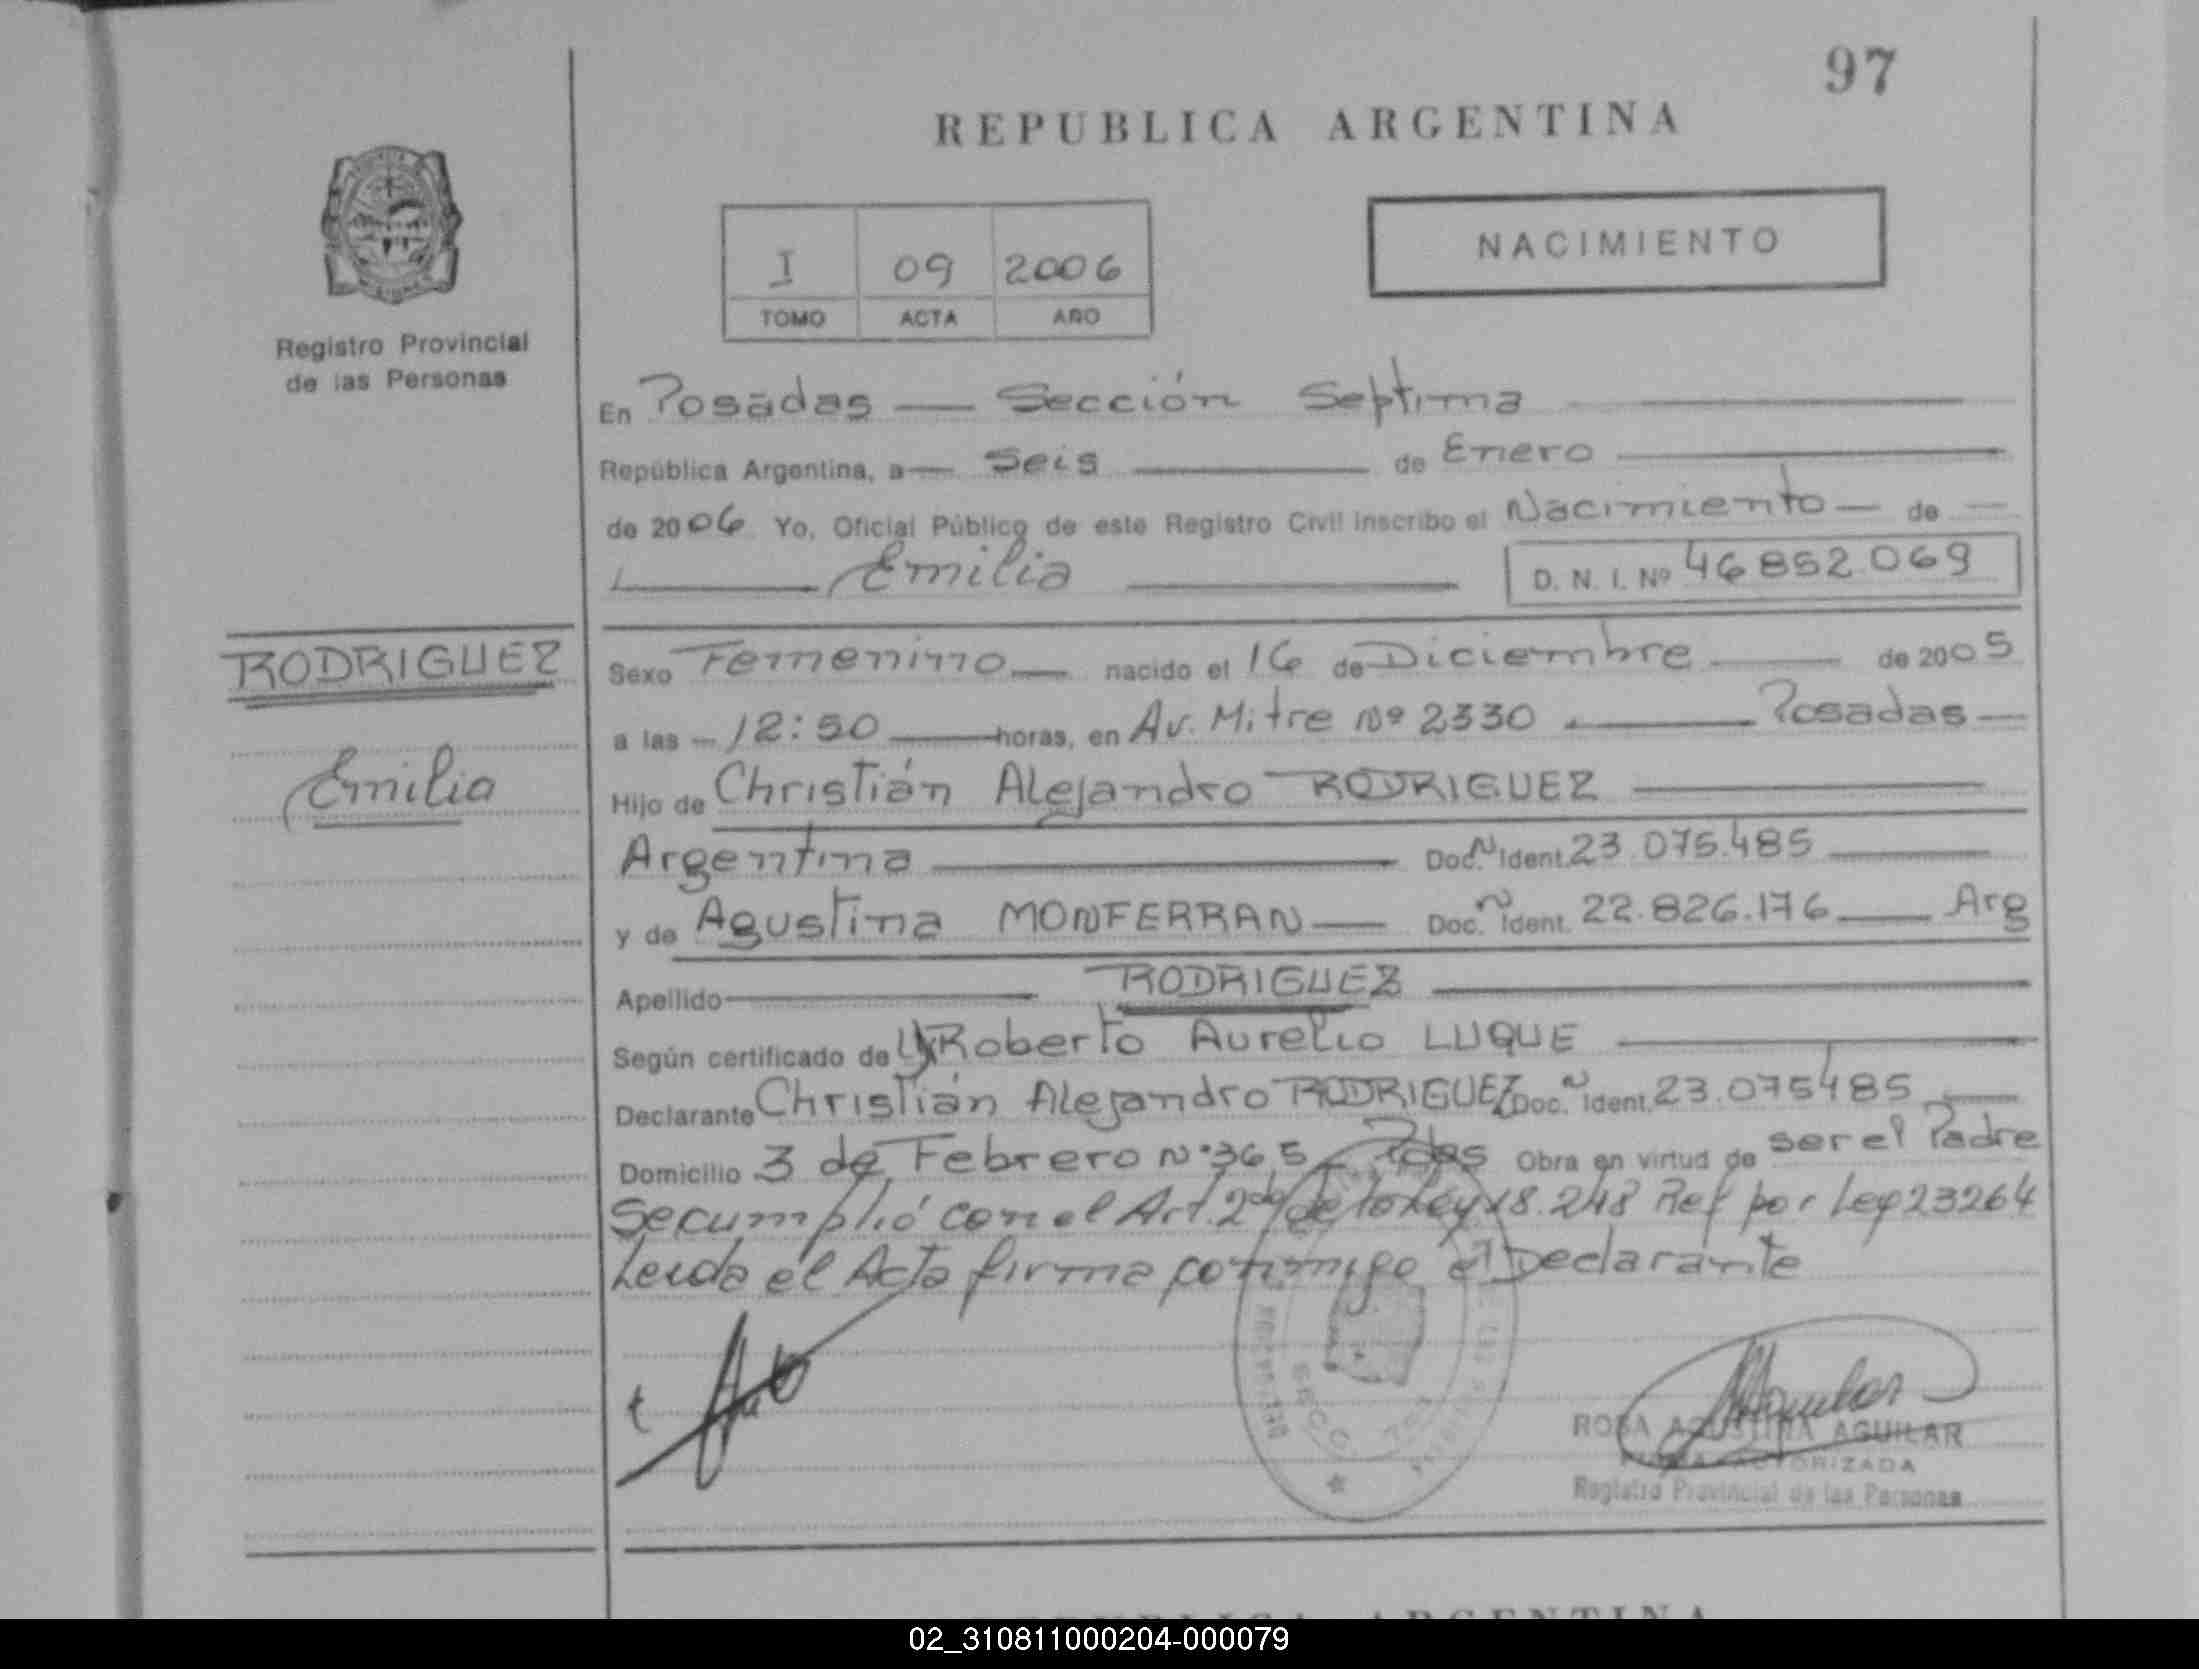 97
REPUBLICA ARGENTINA
NACIMIENTO
I 09 2006
TOMO ACTA AÑO
Registro Provincial
de las Personas
En Posadas — Sección Septima
República Argentina, a — Seis — de Enero
de 2006 Yo, Oficial Público de este Registro Civil inscribo el Nacimiento — de —
Emilia
D. N. I. Nº 46852.069
RODRIGUEZ
Emilia
Sexo Femenino — nacido el 16 de Diciembre — de 2005
a las — 12:50 — horas, en Av. Mitre Nº 2330 — Posadas —
Hijo de Christián Alejandro RODRIGUEZ
Argentina — Doc. N Ident. 23.075.485
y de Agustina MONFERRAN — Doc. N Ident. 22.826.176 — Arg
Apellido — RODRIGUEZ
Según certificado de Roberto Aurelio LUQUE
Declarante Christián Alejandro RODRIGUEZ Doc. N Ident. 23.075485
Domicilio 3 de Febrero Nº 365 — Pdas Obra en virtud de ser el Padre
Se cumplió con el Art. 2do de la Ley 18.248 Ref por Ley 23264
Leida el Acta firma conmigo el Declarante
ROSA AGUSTINA AGUILAR
FIRMA AUTORIZADA
Registro Provincial de las Personas
REPUBLICA ARGENTINA
02_310811000204-000079